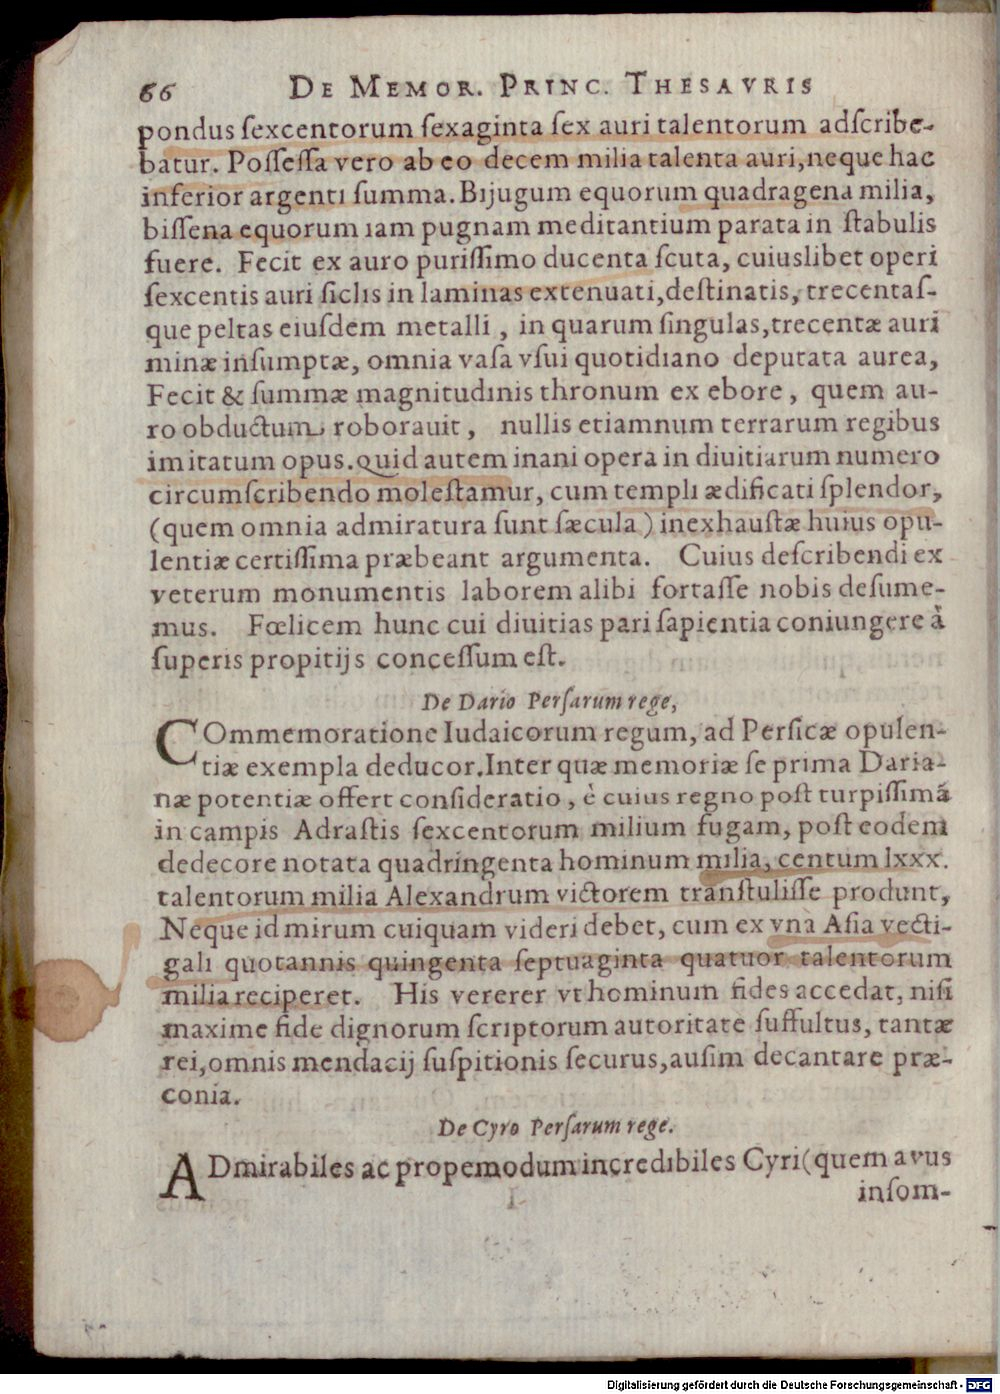 66 DE MEMOR. PRINC. THESAVRIS
pondus ſexcentorum ſexaginta ſex auri talentorum adſcribe-
batur. Poſſeſſa vero ab eo decem milia talenta auri, neque hac
inferior argenti ſumma. Bijugum equorum quadragena milia,
biſſena equorum iam pugnam meditantium parata in ſtabulis
fuere. Fecit ex auro puriſſimo ducenta ſcuta, cuiuslibet operi
ſexcentis auri ſiclis in laminas extenuati, deſtinatis, trecentaſ-
que peltas eiuſdem metalli, in quarum ſingulas, trecentæ auri
minæ inſumptæ, omnia vaſa vſui quotidiano deputata aurea,
Fecit & ſummæ magnitudinis thronum ex ebore, quem au-
ro obductum roborauit, nullis etiamnum terrarum regibus
imitatum opus. Quid autem inani opera in diuitiarum numero
circumſcribendo moleſtamur, cum templi ædificati ſplendor,
(quem omnia admiratura ſunt ſæcula) inexhauſtæ huius opu-
lentiæ certiſſima præbeant argumenta. Cuius deſcribendi ex
veterum monumentis laborem alibi fortaſſe nobis deſume-
mus. Fœlicem hunc cui diuitias pari ſapientia coniungere à
ſuperis propitijs conceſſum eſt.
De Dario Perſarum rege,
COmmemoratione Iudaicorum regum, ad Perſicæ opulen-
tiæ exempla deducor. Inter quæ memoriæ ſe prima Daria-
næ potentiæ offert conſideratio, è cuius regno poſt turpiſſimā
in campis Adraſtis ſexcentorum milium fugam, poſt eodem
dedecore notata quadringenta hominum milia, centum lxxx.
talentorum milia Alexandrum victorem tranſtuliſſe produnt,
Neque id mirum cuiquam videri debet, cum ex vna Aſia vecti-
gali quotannis quingenta ſeptuaginta quatuor talentorum
milia reciperet. His vererer vt hominum fides accedat, niſi
maxime fide dignorum ſcriptorum autoritate ſuffultus, tantæ
rei, omnis mendacij ſuſpitionis ſecurus, auſim decantare præ-
conia.
De Cyro Perſarum rege.
ADmirabiles ac propemodum incredibiles Cyri (quem avus
inſom-
Digitalisierung gefördert durch die Deutsche Forschungsgemeinschaft - DFG